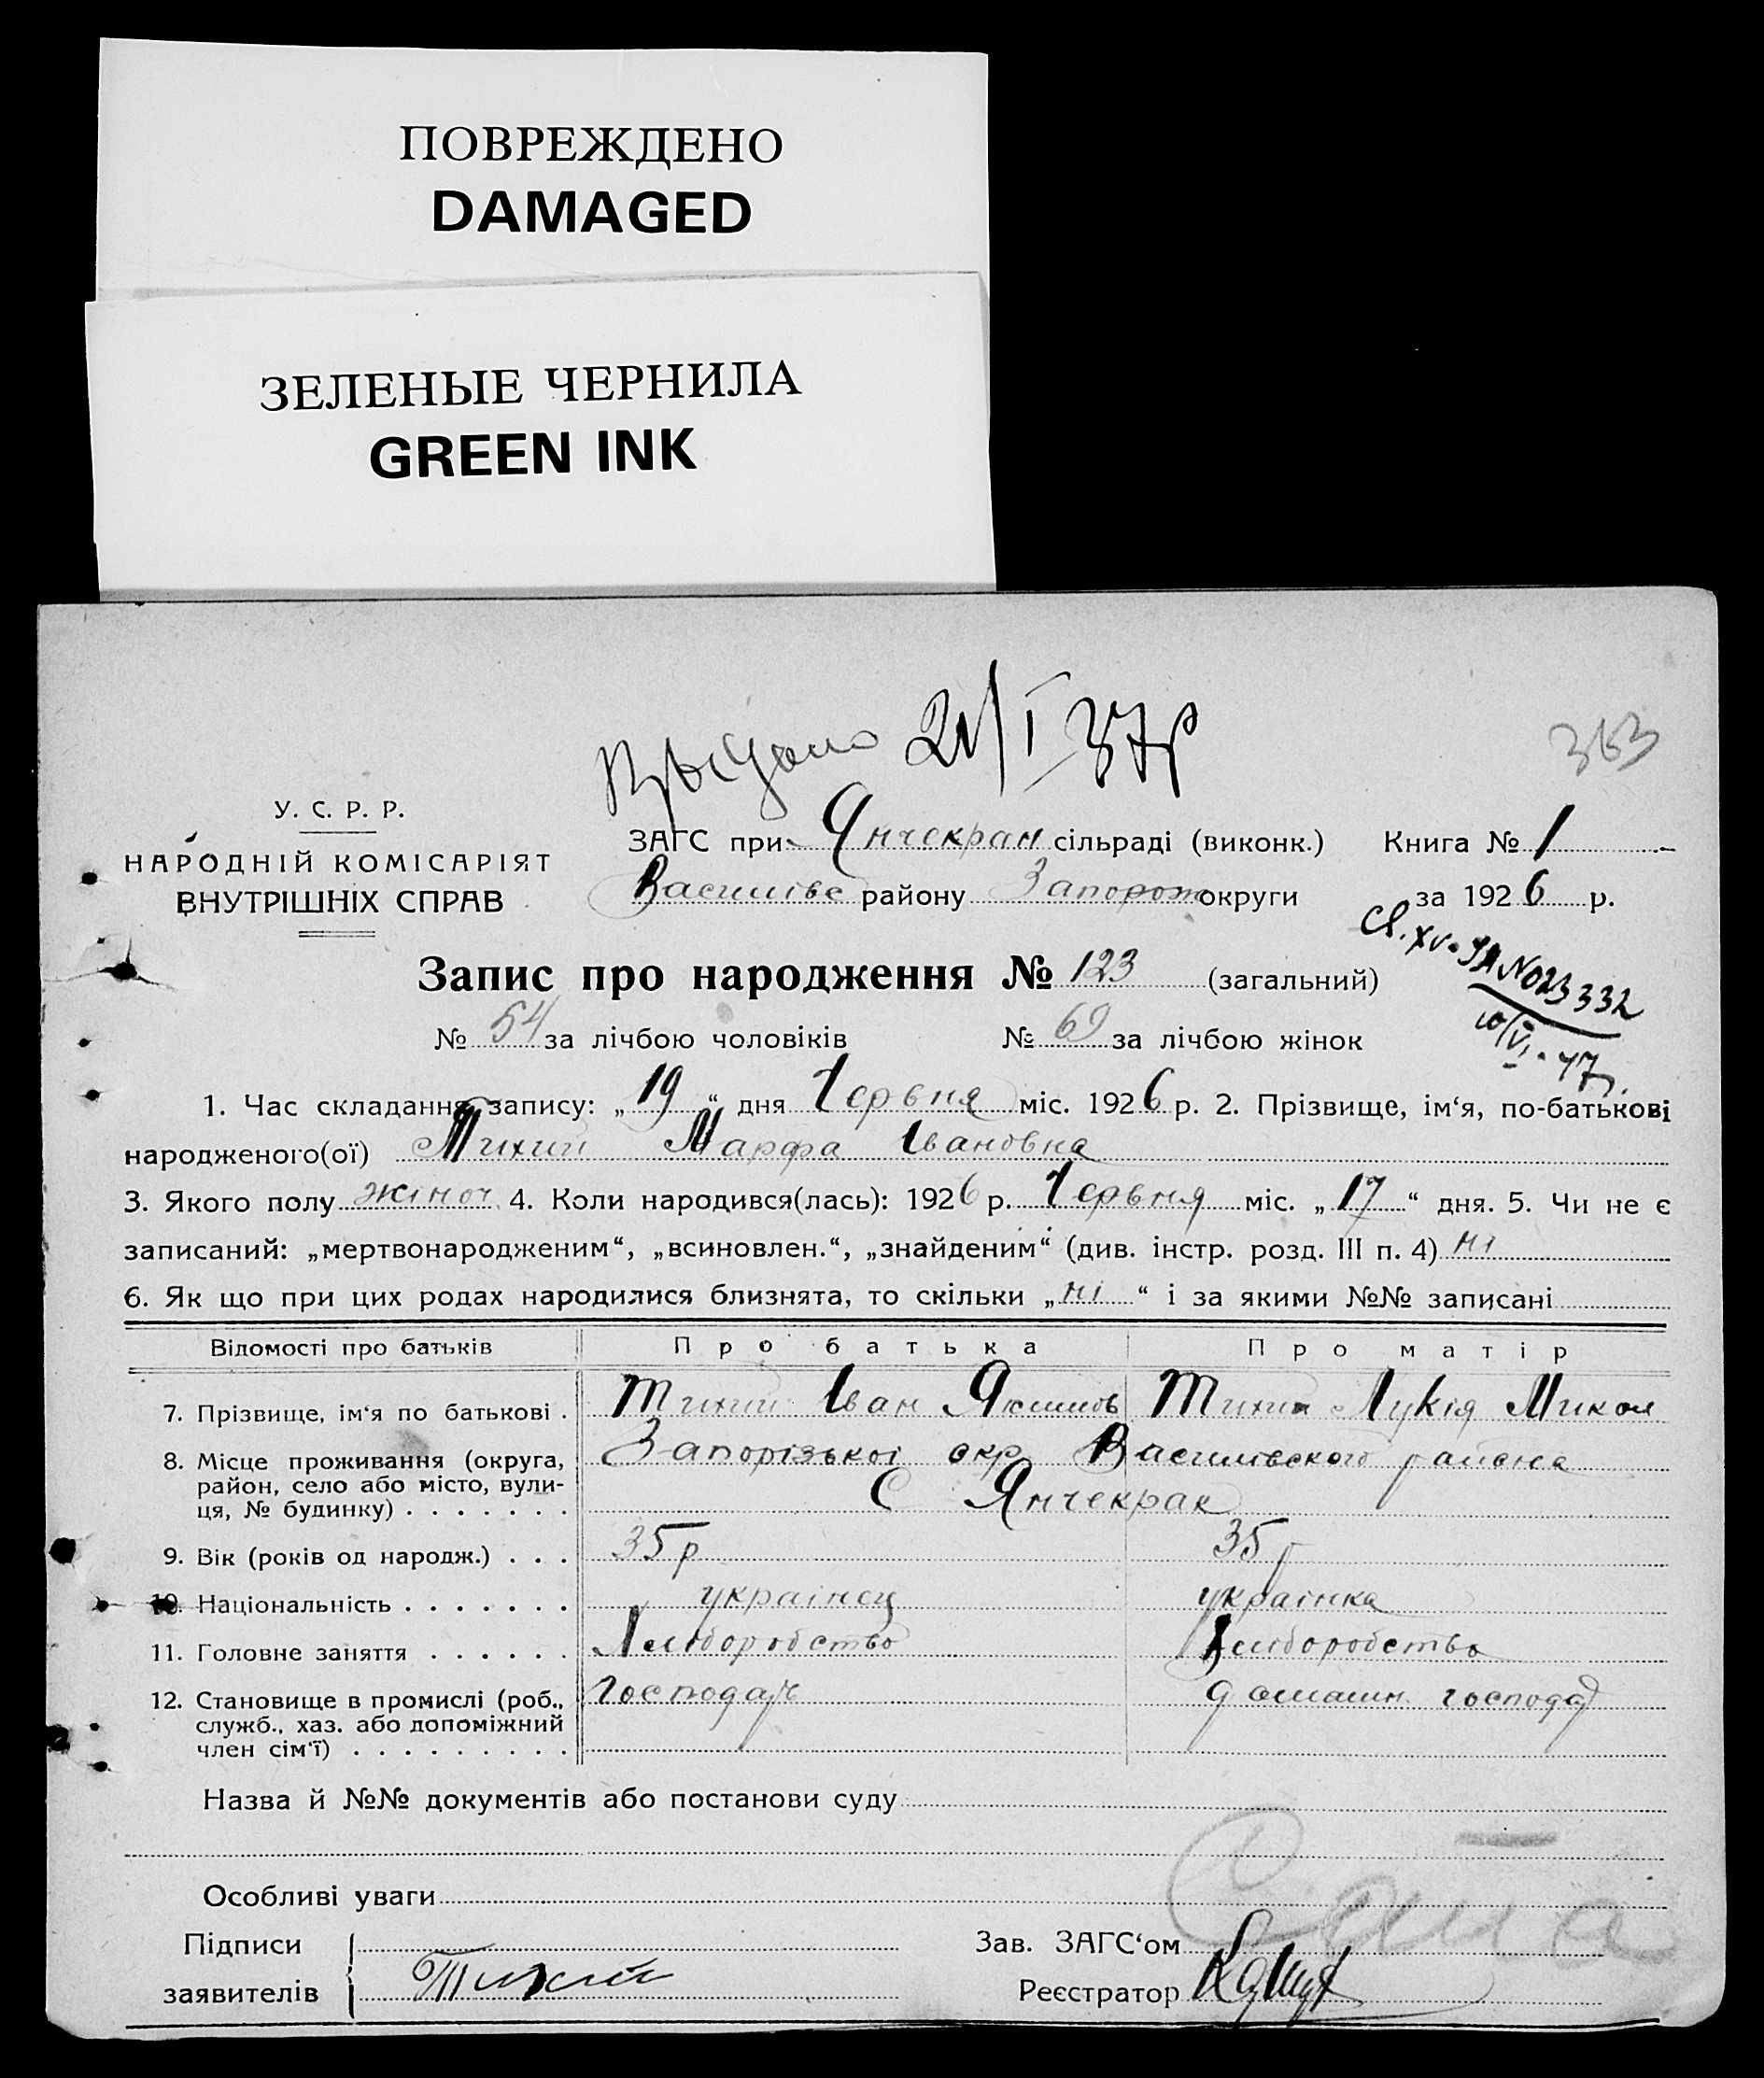 ПОВРЕЖДЕНО
DAMAGED
ЗЕЛЕНЫЕ ЧЕРНИЛА
GREEN INK
21/I 37р
363
У. С. Р. Р.
НАРОДНІЙ КОМІСАРІЯТ
ВНУТРІШНІХ СПРАВ
ЗАГС при Янчекрак сільраді (виконк.) Книга № 1
Василівс району Запорож округи за 1926 р.
Св. XV-ЯА N023332
10/VI-47г.
Запис про народження № 123 (загальний)
№ 54 за лічбою чоловіків № 69 за лічбою жінок
1. Час складання запису: „19“ дня Червня міс. 1926 р. 2. Прізвище, ім‘я, по-батькові
народженого(ої) Тихий Марфа Івановна
3. Якого полу жіноч 4. Коли народився(лась): 1926 р. Червня міс. „17“ дня. 5. Чи не є
записаний: „мертвонародженим“, „всиновлен.“, „знайденим“ (див. інстр. розд. III п. 4) ні
6. Як що при цих родах народилися близнята, то скільки „ні“ і за якими №№ записані
Відомості про батьків Про батька Про матір
7. Прізвище, ім‘я по батькові . Тихий Іван Якимов Тихий Лукія Микол
8. Місце проживання (округа, Запорізької окр Василівского района
район, село або місто, вули- С Янчекрак
ця, № будинку) . . . . . . .
9. Вік (років од народж.) . . . 35 р 35 р
10. Національність . . . . . . . українец українка
11. Головне заняття . . . . . . Хліборобство Хліборобство
12. Становище в промислі (роб., Господарь домашн. господ
служб., хаз. або допоміжний
член сім‘ї) . . . . . . . . .
Назва й №№ документів або постанови суду
Особливі уваги
Підписи Зав. ЗАГС‘ом
заявителів Тихий Реєстратор